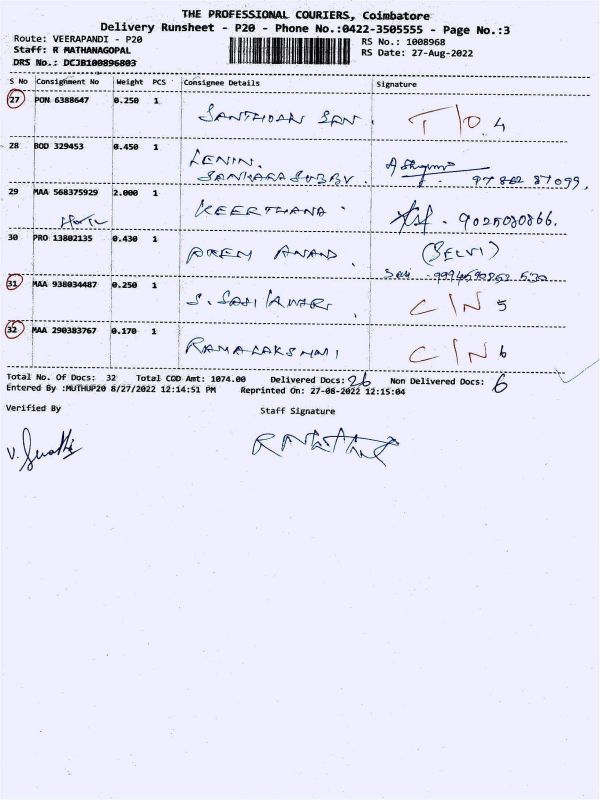 THE PROFESSIONAL COURIERS, Coimbatore
Delivery Runsheet - P20 - Phone No.:0422-3505555 - Page No.:3
Route: VEERAPANDI - P20
RS No.: 1008968
Staff: R MATHANAGOPAL
RS Date: 27-Aug-2022
DRS No.: DCJB100896803
S No Consignment No Weight PCS Consignee Details Signature
27 PON 6388647 0.250 1
SANTHOSH SAN. T/O. 4
28 BOD 329453 0.450 1
LENIN.
SANKARASUBBU.
29 MAA 568375929 2.000 1
KEERTHANA 9025080866.
30 PRO 13802135 0.430 1
PREM ANAND. (SELVI)
31 MAA 938034487 0.250 1
C/N 5
32 MAA 290383767 0.170 1
RAMALAKSHMI C/N 6
Total No. Of Docs: 32 Total COD Amt: 1074.00 Delivered Docs: 26 Non Delivered Docs: 6
Entered By :MUTHUP20 8/27/2022 12:14:51 PM Reprinted On: 27-08-2022 12:15:04
Verified By Staff Signature